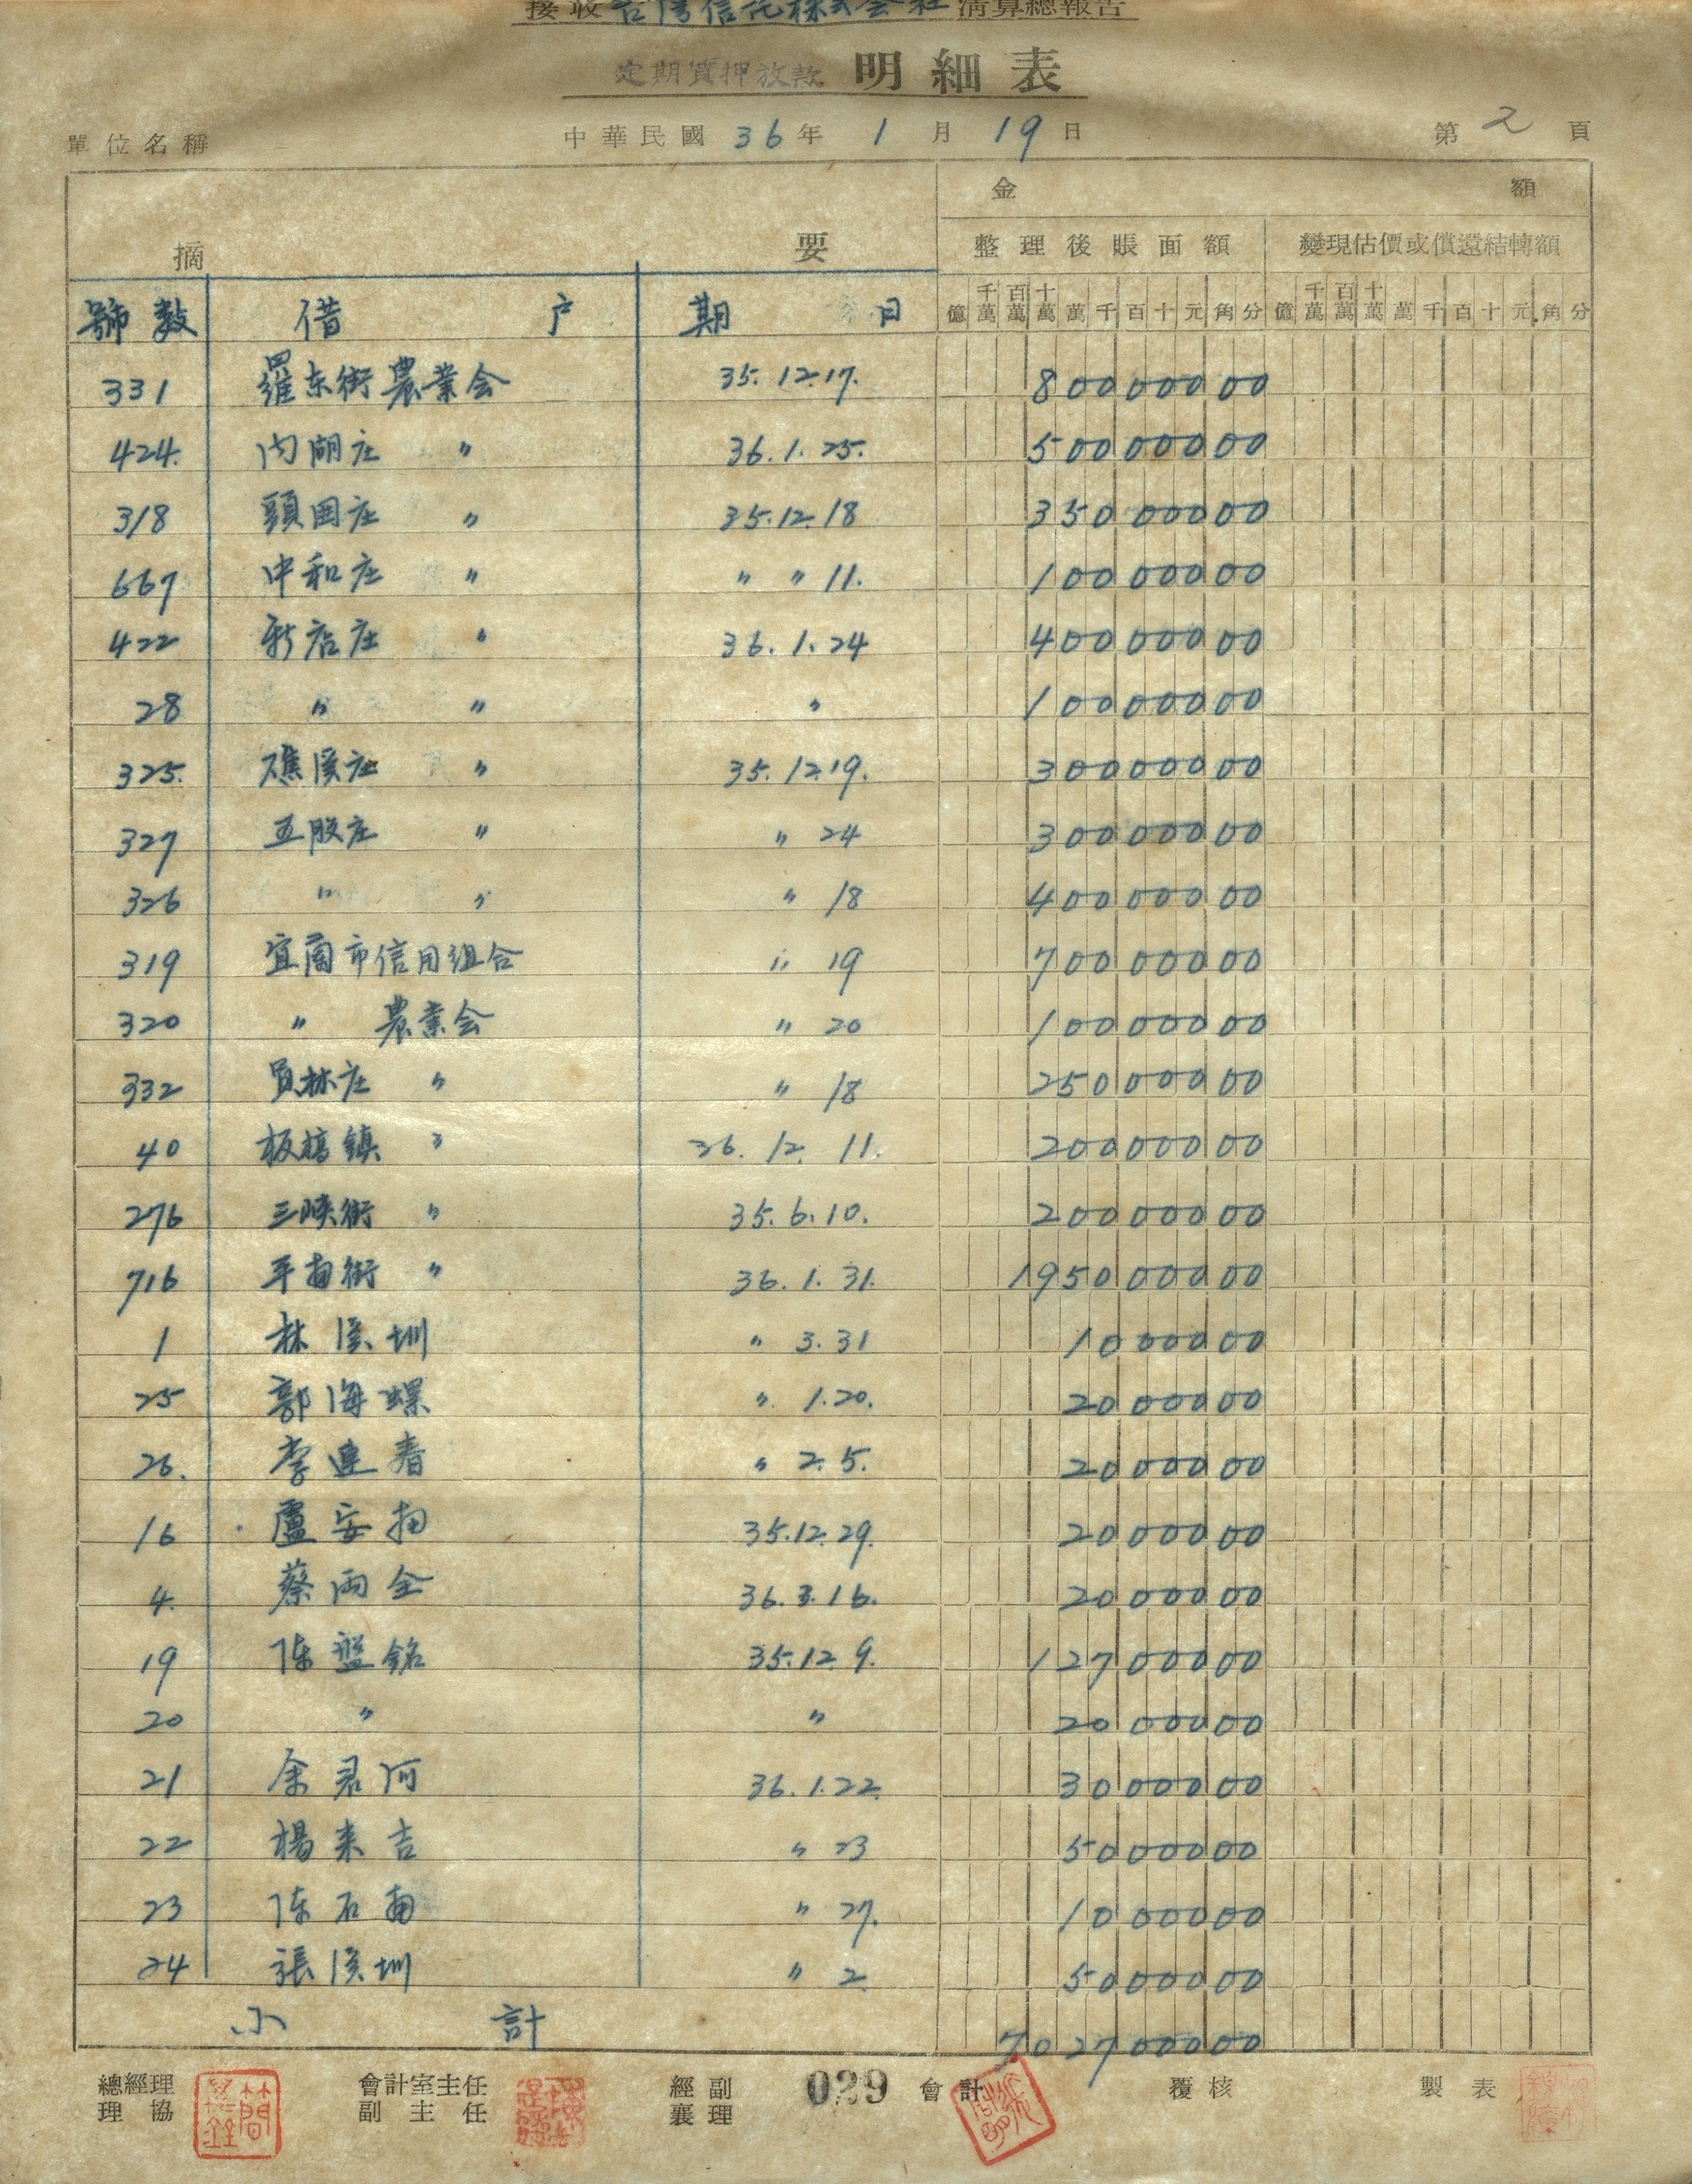 接收台灣信託株式会社清算總報告
定期質押放款 明細表
單位名稱 中華民國36年1月19日 第2頁
摘要 金額
整理後賬面額 變現估價或償還結轉額
號數 借户 期日 億千萬百萬十萬萬千百十元角分 億千萬百萬十萬萬千百十元角分
331 羅东街農業会 35.12.17. 80000000
424. 内湖庄 〃 36.1.25. 50000000
318 頭囲庄 〃 35.12.18 35000000
667 中和庄 〃 〃 〃 11. 10000000
422 新店庄 〃 36.1.24 40000000
28 〃 〃 〃 10000000
325. 礁溪庄 〃 35.12.19. 30000000
327 五股庄 〃 〃 24 30000000
326 〃 〃 〃 18 40000000
319 宜蘭市信用組合 〃 19 70000000
320 〃 農業会 〃 20 10000000
332 員林庄 〃 〃 18 25000000
40 板橋鎮 〃 36.12.11. 20000000
276 三峽街 〃 35.6.10. 20000000
716 平南街 〃 36.1.31. 195000000
1 林溪圳 〃 3.31 1000000
25 郭海螺 〃 1.20. 2000000
26. 李連春 〃 2.5. 2000000
16 盧安 35.12.29. 2000000
4. 蔡両全 36.3.16. 2000000
19 陳盤銘 35.12.9. 12700000
20 〃 〃 2000000
21 余君河 36.1.22. 3000000
22 楊来吉 〃 23 5000000
23 陳石南 〃 27. 1000000
24 張溪圳 〃 2 5000000
小計 702700000
總經理 會計室主任 經副 029 會計 覆核 製表
理協 副主任 襄理